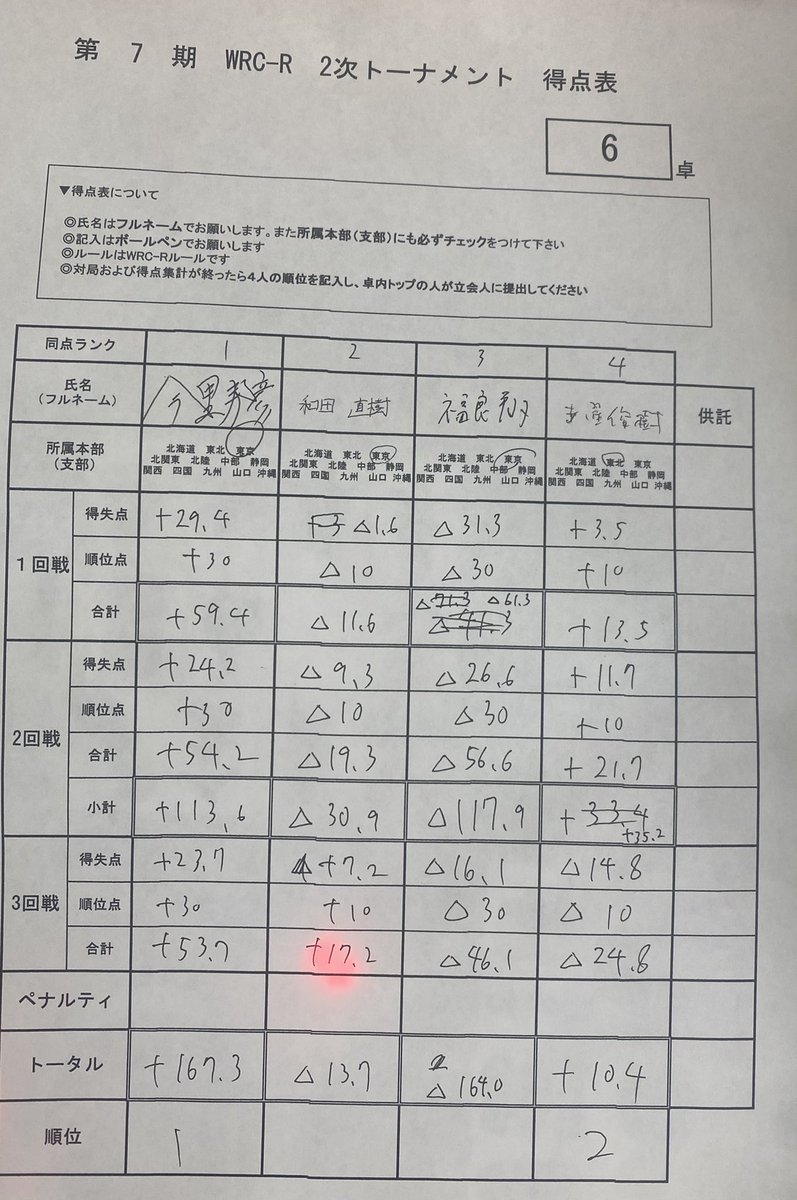 第 7 期 WRC-R 2次トーナメント 得点表
6 卓
▼得点表について
◎氏名はフルネームでお願いします。また所属本部(支部)にも必ずチェックをつけて下さい
◎記入はボールペンでお願いします
◎ルールはWRC-Rルールです
◎対局および得点集計が終ったら4人の順位を記入し、卓内トップの人が立会人に提出してください
同点ランク 1 2 3 4
氏名 (フルネーム) 今里邦彦 和田 直樹 福良 俊樹 供託
所属本部 (支部)
北海道 東北 東京 北海道 東北 東京 北海道 東北 東京 北海道 東北 東京
北関東 北陸 中部 静岡 北関東 北陸 中部 静岡 北関東 北陸 中部 静岡 北関東 北陸 中部 静岡
関西 四国 九州 山口 沖縄 関西 四国 九州 山口 沖縄 関西 四国 九州 山口 沖縄 関西 四国 九州 山口 沖縄
1回戦
得失点 +29.4 △1.6 △31.3 +3.5
順位点 +30 △10 △30 +10
合計 +59.4 △11.6 △71.3 △61.3 △41.3 +13.5
2回戦
得失点 +24.2 △9.3 △26.6 +11.7
順位点 +30 △10 △30 +10
合計 +54.2 △19.3 △56.6 +21.7
小計 +113.6 △30.9 △117.9 +33.4 +35.2
3回戦
得失点 +23.7 +7.2 △16.1 △14.8
順位点 +30 +10 △30 △10
合計 +53.7 +17.2 △46.1 △24.8
ペナルティ
トータル +167.3 △13.7 △164.0 +10.4
順位 1 2